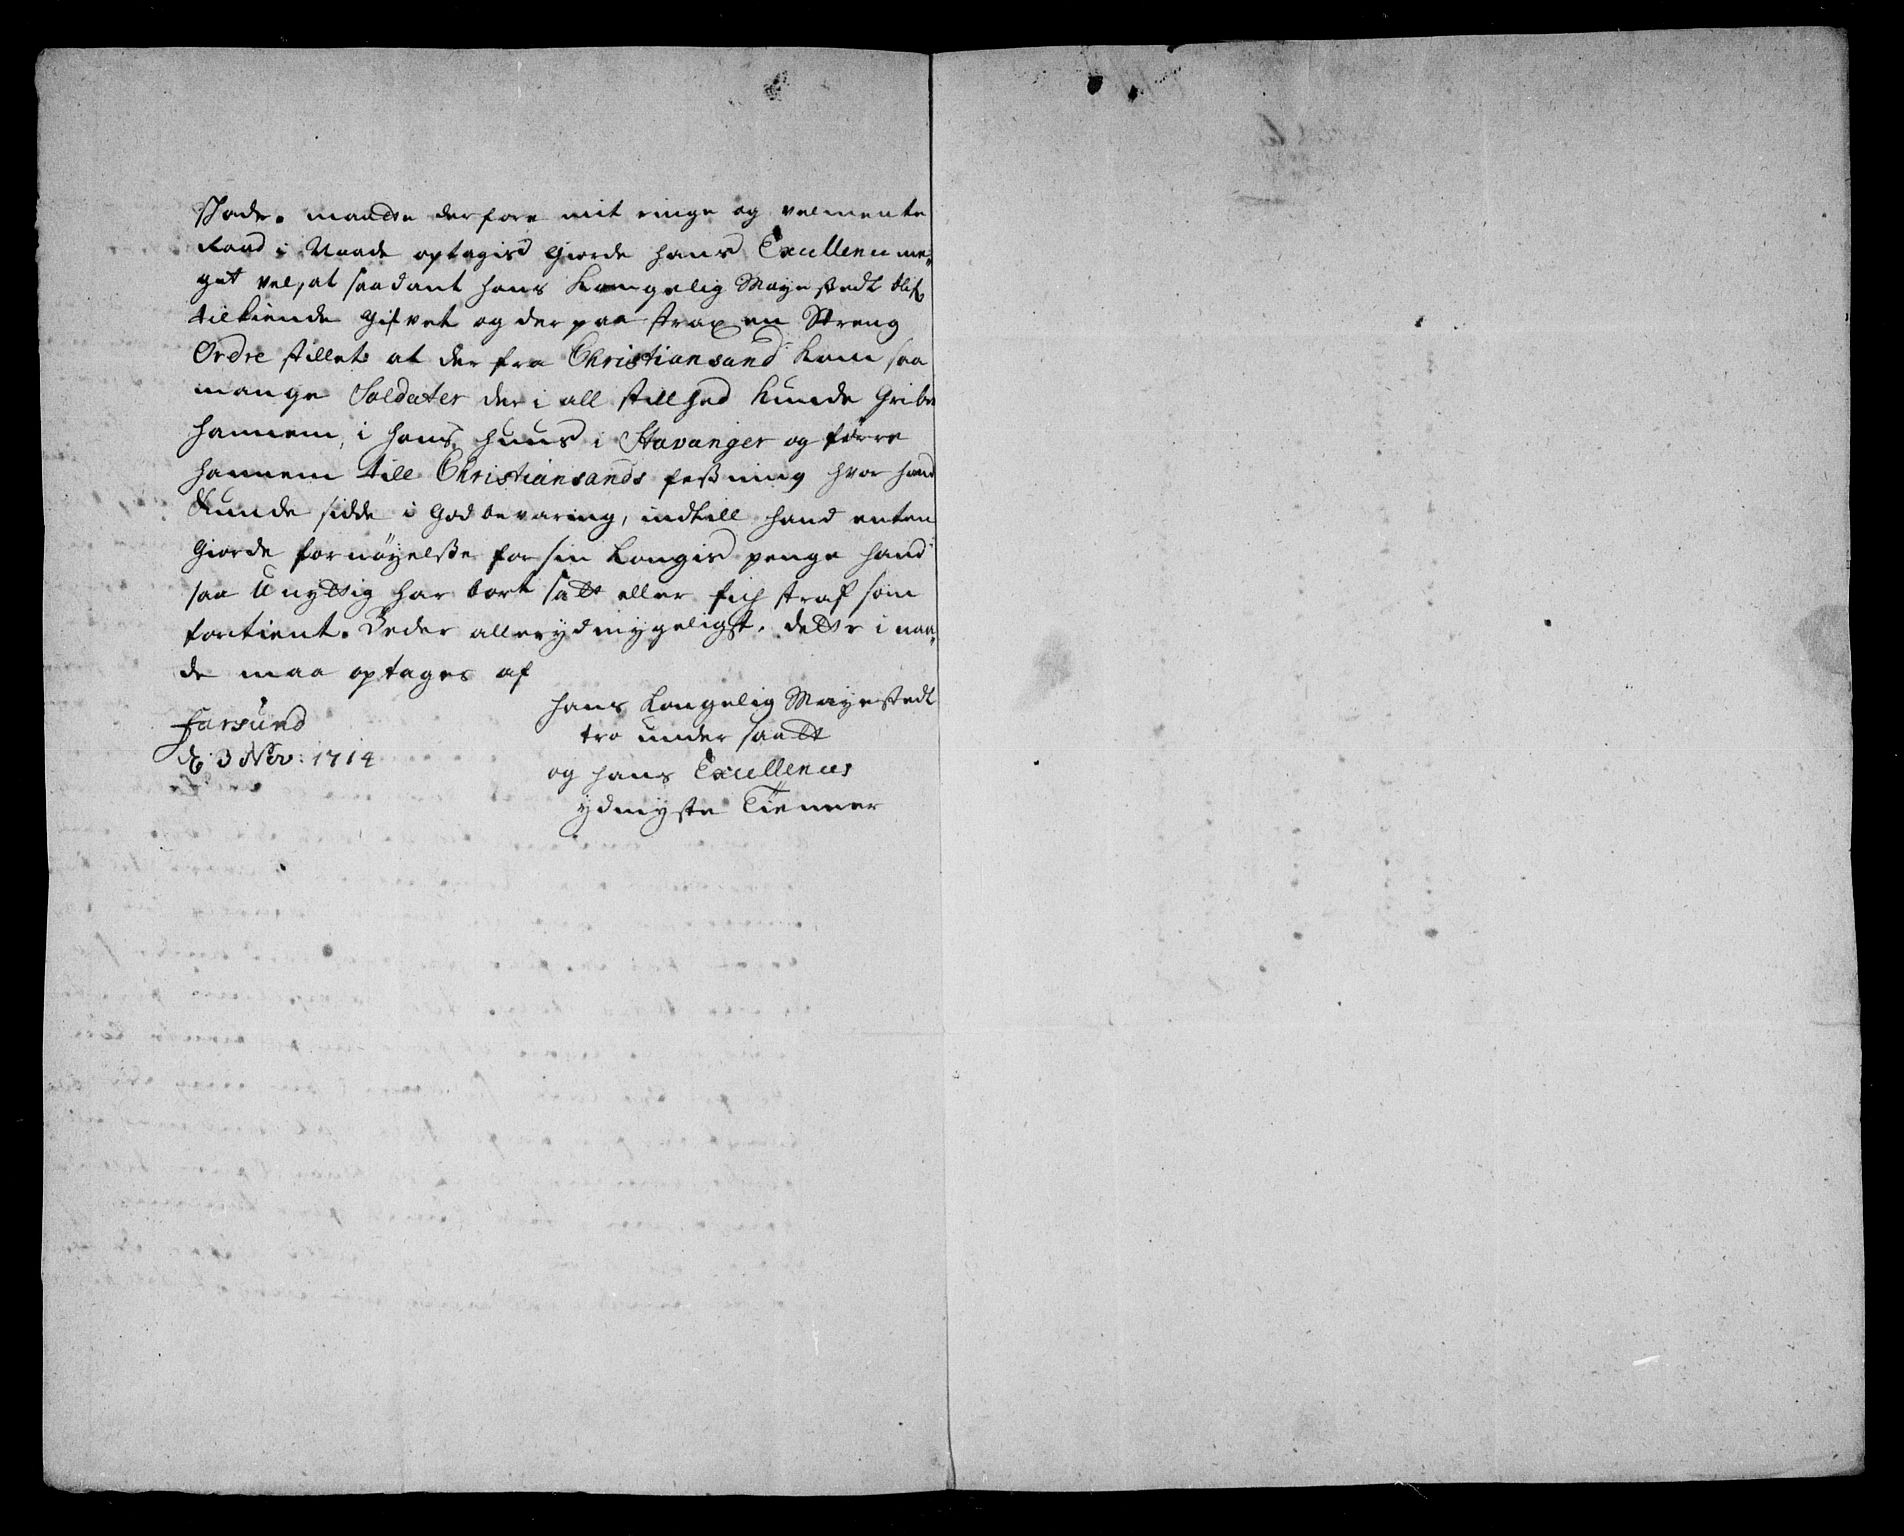 skade. maatte derfore mit ringe og velmente
Raad i Naade optagis giorde hans Excellence me,,
get vel, at saadant hans Kongelig Mayestedt blef
tilkiende gifvet og der paa strax en Streng
Ordre stillet at der fra Christiansand kom saa
mange Soldater der i all stillhed kunde Gribe
hannem, i hans huus i Stavanger og förre
hannem till Christiansands festning hvor hand
kunde sidde i God bevaring, indtill hand enten
giorde fornöyelsse for sin Kongis penge hand
saa Unyttig har bort satt eller fich straf som
fortient. Beder allerydmygeligst, dette i naa,,
de maa optages af
Farsund
d. 3 Nov: 1714
hans Kongelig Mayestedt
tro under saatt
og hans Excellences
ydmyste Tienner